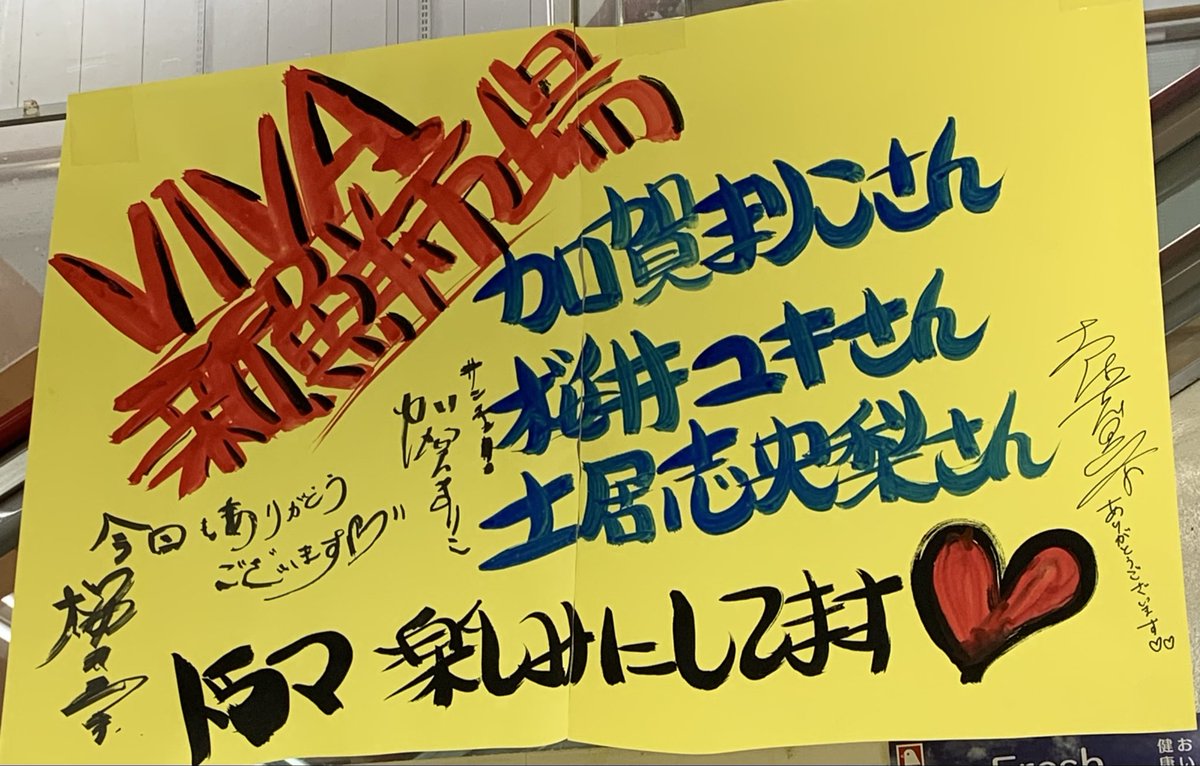 VIVA
新鮮市場
加賀まりこさん
桜井ユキさん
土居志央梨さん
サンキュー!!
加賀まりこ
今回もありがとう
ございます♡
ありがとうございます♡♡
ドラマ 楽しみにしてます
Fresh
おい
健康